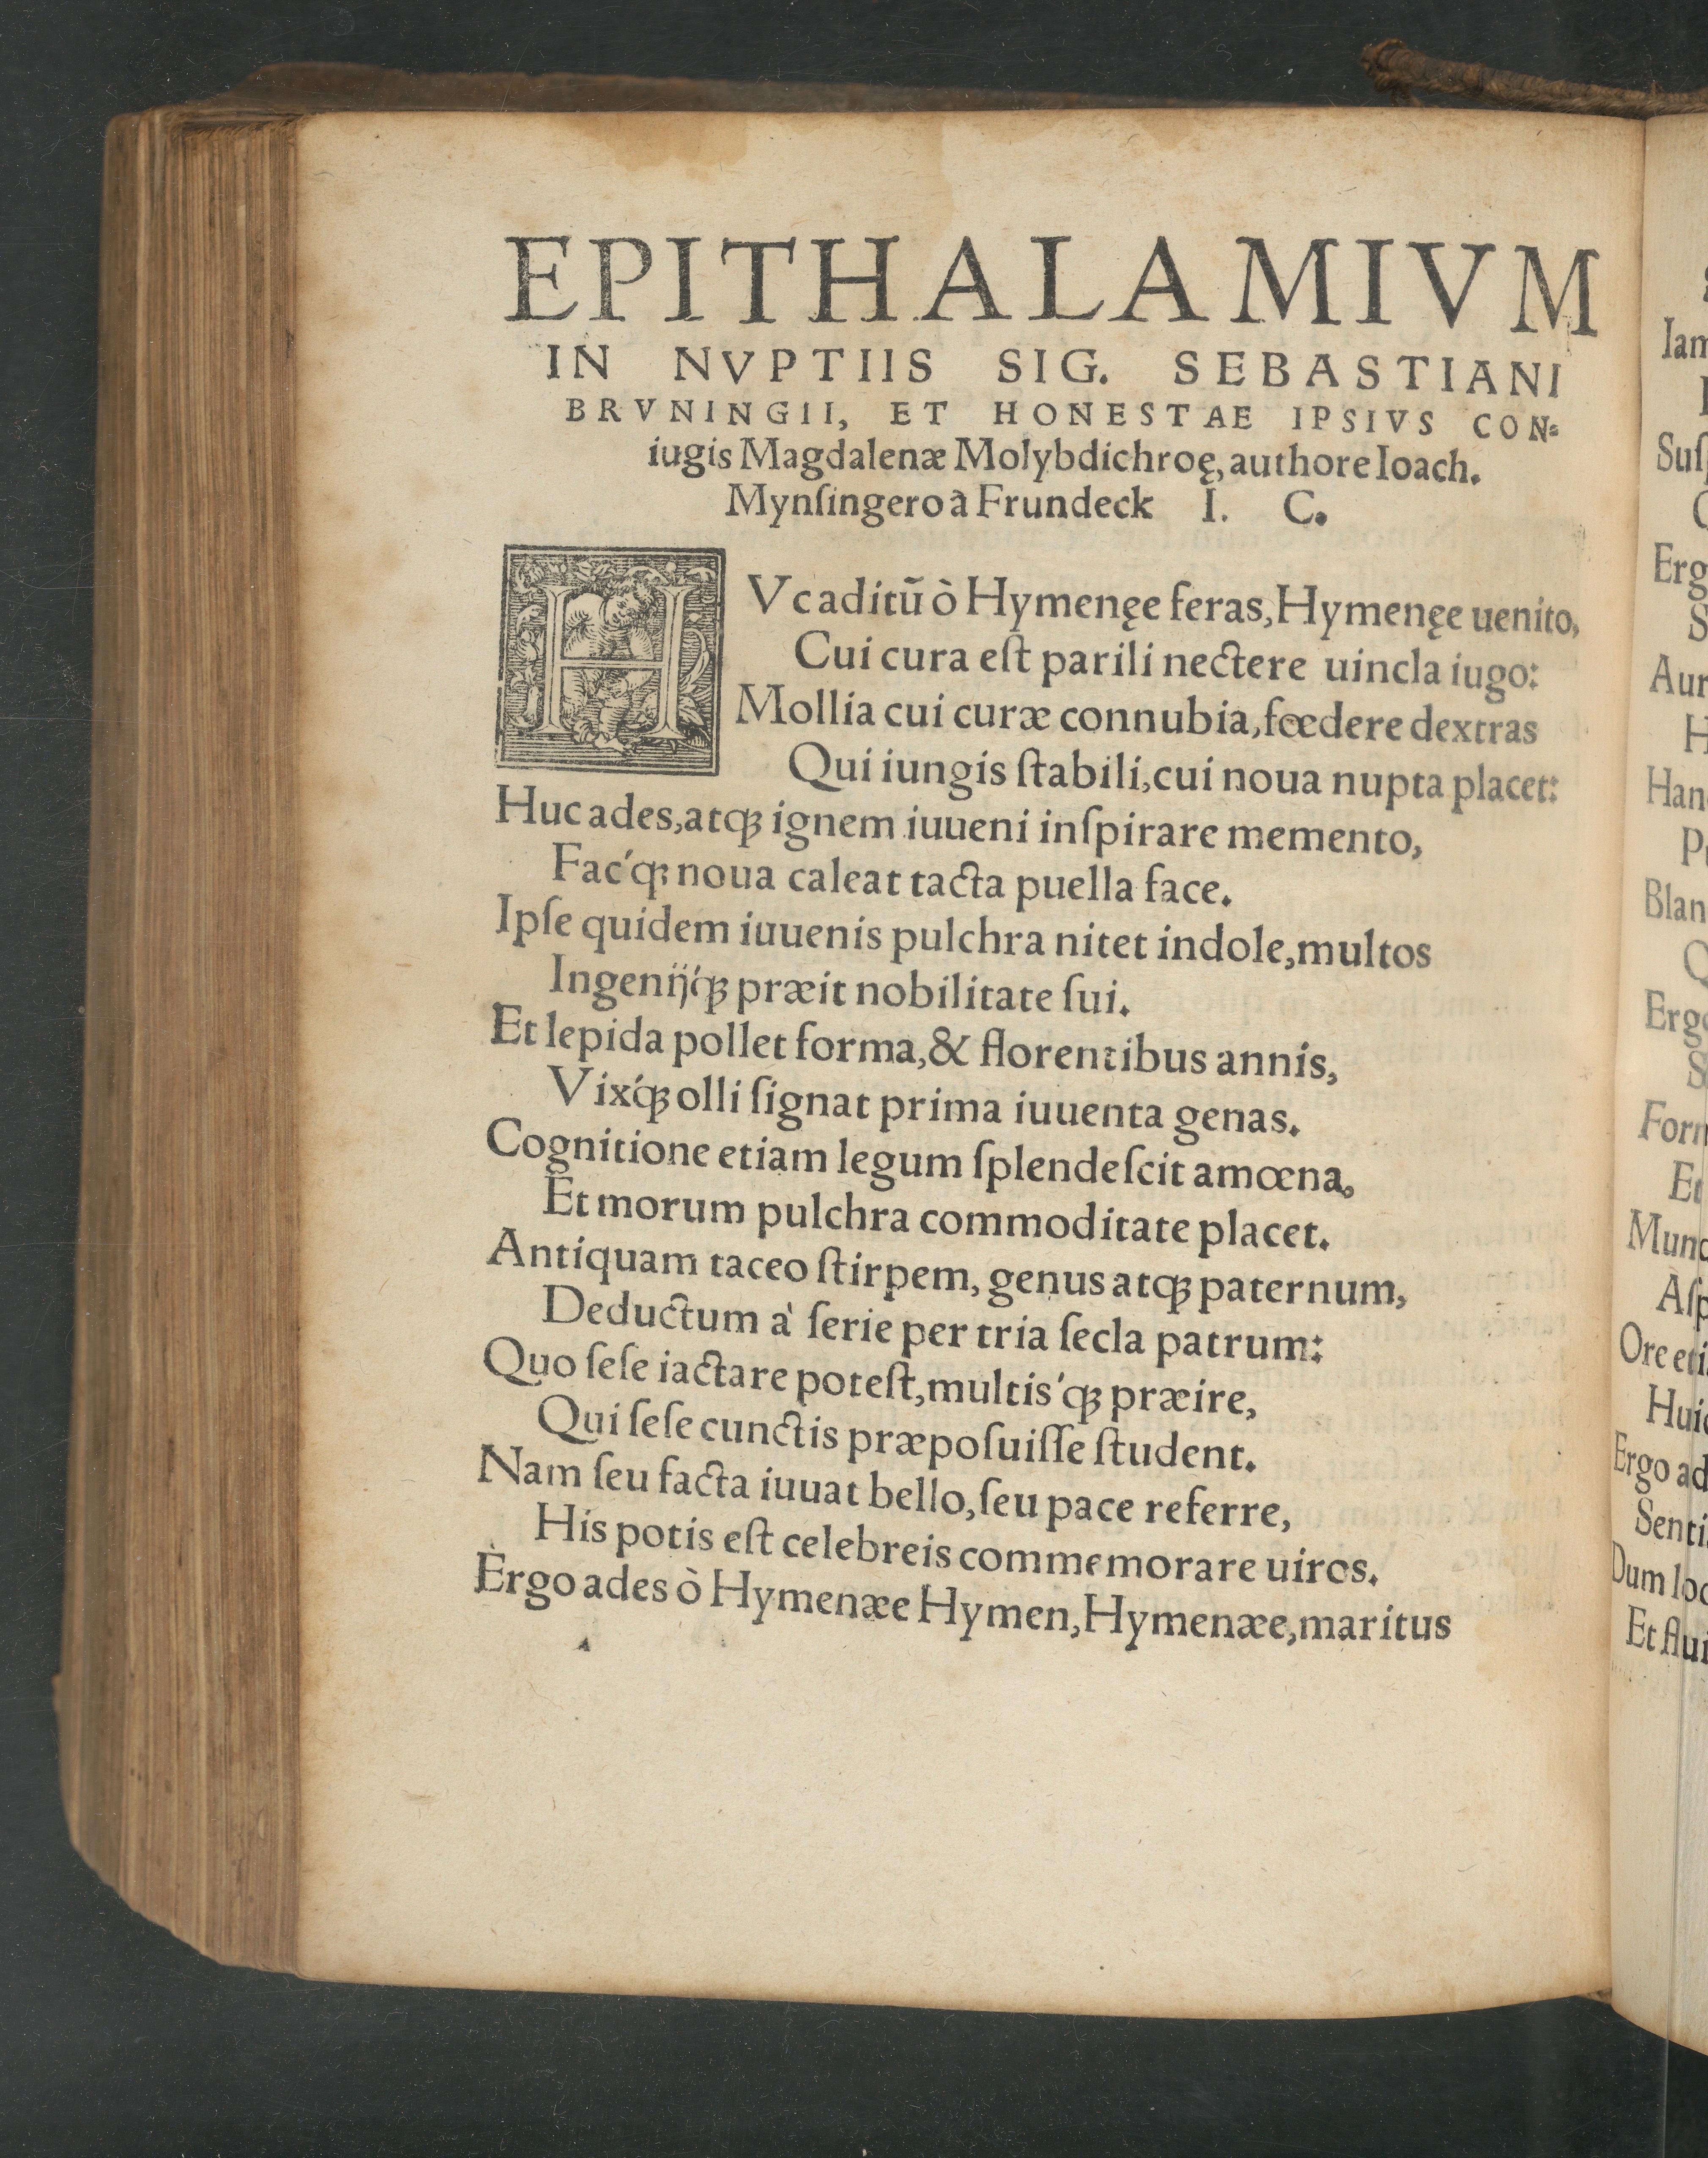 EPITHALAMIVM
IN NVPTIIS SIG. SEBASTIANI
BRVNINGII, ET HONESTAE IPSIVS CON⸗
iugis Magdalenæ Molybdichroę, authore Ioach.
Mynſingero à Frundeck I. C.
HVc aditũ ò Hymenęe feras, Hymenęe uenito,
Cui cura eſt parili nectere uincla iugo:
Mollia cui curæ connubia, fœdere dextras
Qui iungis ſtabili, cui noua nupta placet:
Huc ades, atqꝫ ignem iuueni inſpirare memento,
Fac'qꝫ noua caleat tacta puella face.
Ipſe quidem iuuenis pulchra nitet indole, multos
Ingenij'qꝫ præit nobilitate ſui.
Et lepida pollet forma, & florentibus annis,
Vix'qꝫ olli ſignat prima iuuenta genas.
Cognitione etiam legum ſplendeſcit amœna,
Et morum pulchra commoditate placet.
Antiquam taceo ſtirpem, genus atqꝫ paternum,
Deductum à ſerie per tria ſecla patrum:
Quo ſeſe iactare poteſt, multis'qꝫ præire,
Qui ſeſe cunctis præpoſuiſſe ſtudent.
Nam ſeu facta iuuat bello, ſeu pace referre,
His potis eſt celebreis commemorare uiros.
Ergo ades ò Hymenæe Hymen, Hymenæe, maritus
Iam
Erg
Aur
Han
Blan
Ergo
Form
Et
Mund
Aſp
Ore eti
Huic
Ergo ad
Senti
Dum loc
Et flui